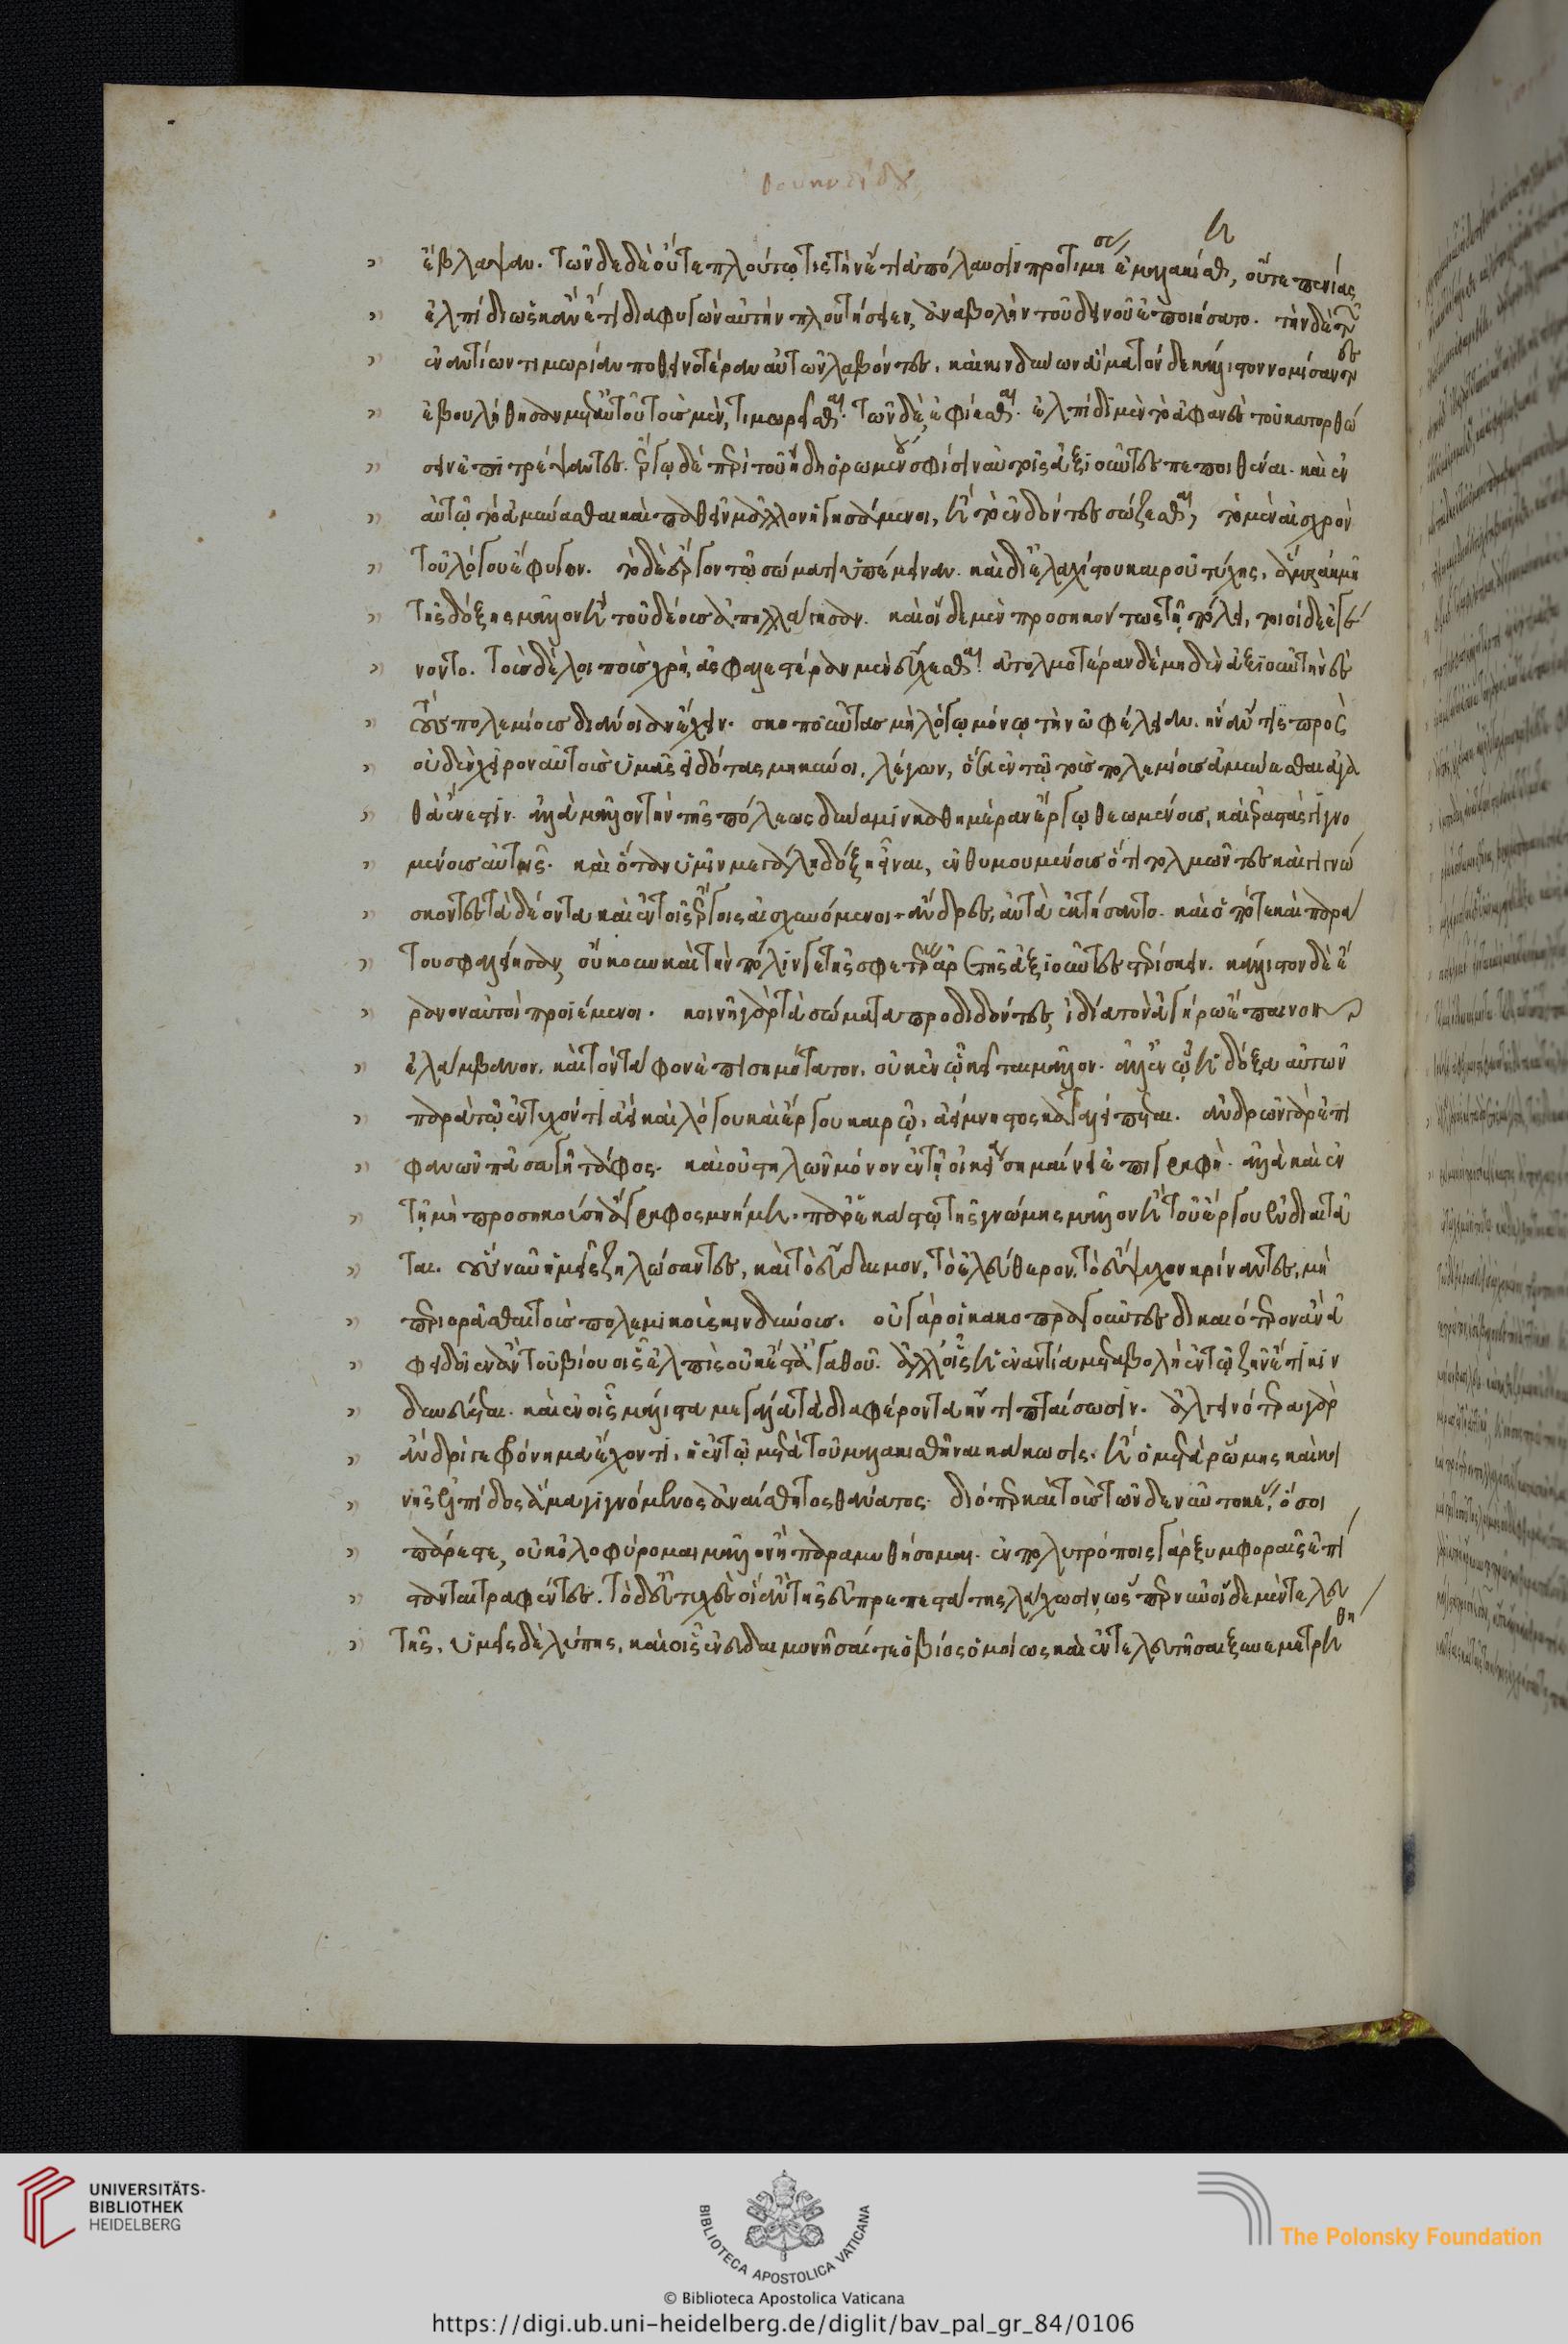 Θουκυδίδου
ἔβλαψαν. τῶνδε δὲ οὔτε πλούτῳ τις τὴν ἔτι ἀπόλαυσιν προτιμήσας ἐμαλακίσθη, οὔτε πενίας
ἐλπίδι ὡς κἂν ἔτι διαφυγὼν αὐτὴν πλουτήσειεν, ἀναβολὴν τοῦ δεινοῦ ἐποιήσατο. τὴν δὲ τῶν
ἐναντίων τιμωρίαν ποθεινοτέραν αὐτῶν λαβόντες, καὶ κινδύνων ἅμα τόνδε κάλλιστον νομίσαντες
ἐβουλήθησαν μετ' αὐτοῦ τοὺς μὲν, τιμωρεῖσθαι. τῶν δὲ, ἐφίεσθαι. ἐλπίδι μὲν τὸ ἀφανὲς τοῦ κατορθώ
σειν ἐπιτρέψαντες. ἔργῳ δὲ περὶ τοῦ ἤδη ὁρωμένου σφίσιν αὐτοῖς ἀξιοῦντες πεποιθέναι. καὶ ἐν
αὐτῷ τὸ ἀμύνασθαι καὶ παθεῖν μᾶλλον ἡγησάμενοι, ἢ τὸ ἐνδόντες σώζεσθαι, τὸ μὲν αἰσχρὸν
τοῦ λόγου ἔφυγον. τὸ δὲ ἔργον τῷ σώματι ὑπέμειναν. καὶ δι' ἐλαχίστου καιροῦ τύχης, ἅμα ἀκμῇ
τῆς δόξης μᾶλλον ἢ τοῦ δέους ἀπηλλάγησαν. καὶ οἵδε μὲν προσηκόντως τῇ πόλει, τοιοίδε ἐγέ
νοντο. τοὺς δὲ λοιποὺς χρὴ, ἀσφαλεστέραν μὲν εὔχεσθαι ἀτολμοτέραν δὲ μηδὲν ἀξιοῦν τὴν ἐς
τοὺς πολεμίους διάνοιαν ἔχειν. σκοποῦντας μὴ λόγῳ μόνῳ τὴν ὠφέλειαν. ἣν ἄν τις πρὸς
οὐδὲν χεῖρον αὐτοὺς ὑμᾶς εἰδότας μηκύνοι, λέγων, ὅσα ἐν τῷ τοὺς πολεμίους ἀμύνασθαι ἀγα
θὰ ἔνεστιν. ἀλλὰ μᾶλλον τὴν τῆς πόλεως δύναμιν καθημέραν ἔργῳ θεωμένους, καὶ ἐραστὰς γιγνο
μένους αὐτῆς. καὶ ὅταν ὑμῖν μεγάλη δόξῃ εἶναι, ἐνθυμουμένους ὅτι τολμῶντες καὶ γιγνώ
σκοντες τὰ δέοντα καὶ ἐν τοῖς ἔργοις αἰσχυνόμενοι ἄνδρες, αὐτὰ ἐκτήσαντο. καὶ ὁπότε καὶ πεῖρά
του σφαλείησαν, οὔκουν καὶ τὴν πόλιν γε τῆς σφετέρας ἀρετῆς ἀξιοῦντες στερίσκειν. κάλλιστον δὲ ἔ
ρανον αὐτοὶ προϊέμενοι. κοινῇ γὰρ τὰ σώματα προδιδόντες, ἰδίᾳ τὸν ἀγήρων ἔπαινον
ἐλάμβανον. καὶ τὸν τάφον ἐπισημότατον. οὐκ ἐν ᾧ κεῖνται μᾶλλον. ἀλλ' ἐν ᾧ ἡ δόξα αὐτῶν
παρὰ τῷ ἐντυχόντι ἀεὶ καὶ λόγου καὶ ἔργου καιρῷ, ἀείμνηστος καταλείπεται. ἀνδρῶν γὰρ ἐπι
φανῶν πᾶσα γῆ τάφος. καὶ οὐ στηλῶν μόνον ἐν τῇ οἰκείᾳ σημαίνει ἐπιγραφή. ἀλλὰ καὶ ἐν
τῇ μὴ προσηκούσῃ ἄγραφος μνήμη. παρ' ἑκάστῳ τῆς γνώμης μᾶλλον ἢ τοῦ ἔργου ἐνδιαιτᾶ
ται. οὓς νῦν ὑμεῖς ζηλώσαντες, καὶ τὸ εὔδαιμον, τὸ ἐλεύθερον, τὸ εὔψυχον κρίναντες, μὴ
περιορᾶσθαι τοὺς πολεμικοὺς κινδύνους. οὐ γὰρ οἱ κακοπραγοῦντες δικαιότερον ἂν ἀ
φειδοῖεν ἂν τοῦ βίου οἷς ἐλπὶς οὐκ ἔστ' ἀγαθοῦ. ἀλλ' οἷς ἡ ἐναντία μεταβολὴ ἐν τῷ ζῆν ἔτι κιν
δυνεύεται. καὶ ἐν οἷς μάλιστα μεγάλα τὰ διαφέροντα ἤν τι πταίσωσιν. ἀλγεινοτέρα γὰρ
ἀνδρί γε φρόνημα ἔχοντι, ἡ ἐν τῷ μετὰ τοῦ μαλακισθῆναι κάκωσις. ἢ ὁ μετὰ ῥώμης καὶ κοι
νῆς ἐλπίδος ἅμα γιγνόμενος ἀναίσθητος θάνατος. διόπερ καὶ τοὺς τῶνδε νῦν τοκέας, ὅσοι
πάρεστε, οὐκ ὀλοφύρομαι μᾶλλον ἢ παραμυθήσομαι. ἐν πολυτρόποις γὰρ ξυμφοραῖς ἐπί
στανται τραφέντες. τὸ δ' εὐτυχὲς οἳ ἂν τῆς εὐπρεπεστάτης λάχωσιν, ὥσπερ νῦν οἵδε μὲν τελευ
τῆς. ὑμεῖς δὲ λύπης. καὶ οἷς ἐνευδαιμονῆσαί τε ὁ βίος ὁμοίως καὶ ἐντελευτῆσαι ξυνεμετρήθη
UNIVERSITÄTS-
BIBLIOTHEK
HEIDELBERG
BIBLIOTECA APOSTOLICA VATICANA
The Polonsky Foundation
© Biblioteca Apostolica Vaticana
https://digi.ub.uni-heidelberg.de/diglit/bav_pal_gr_84/0106